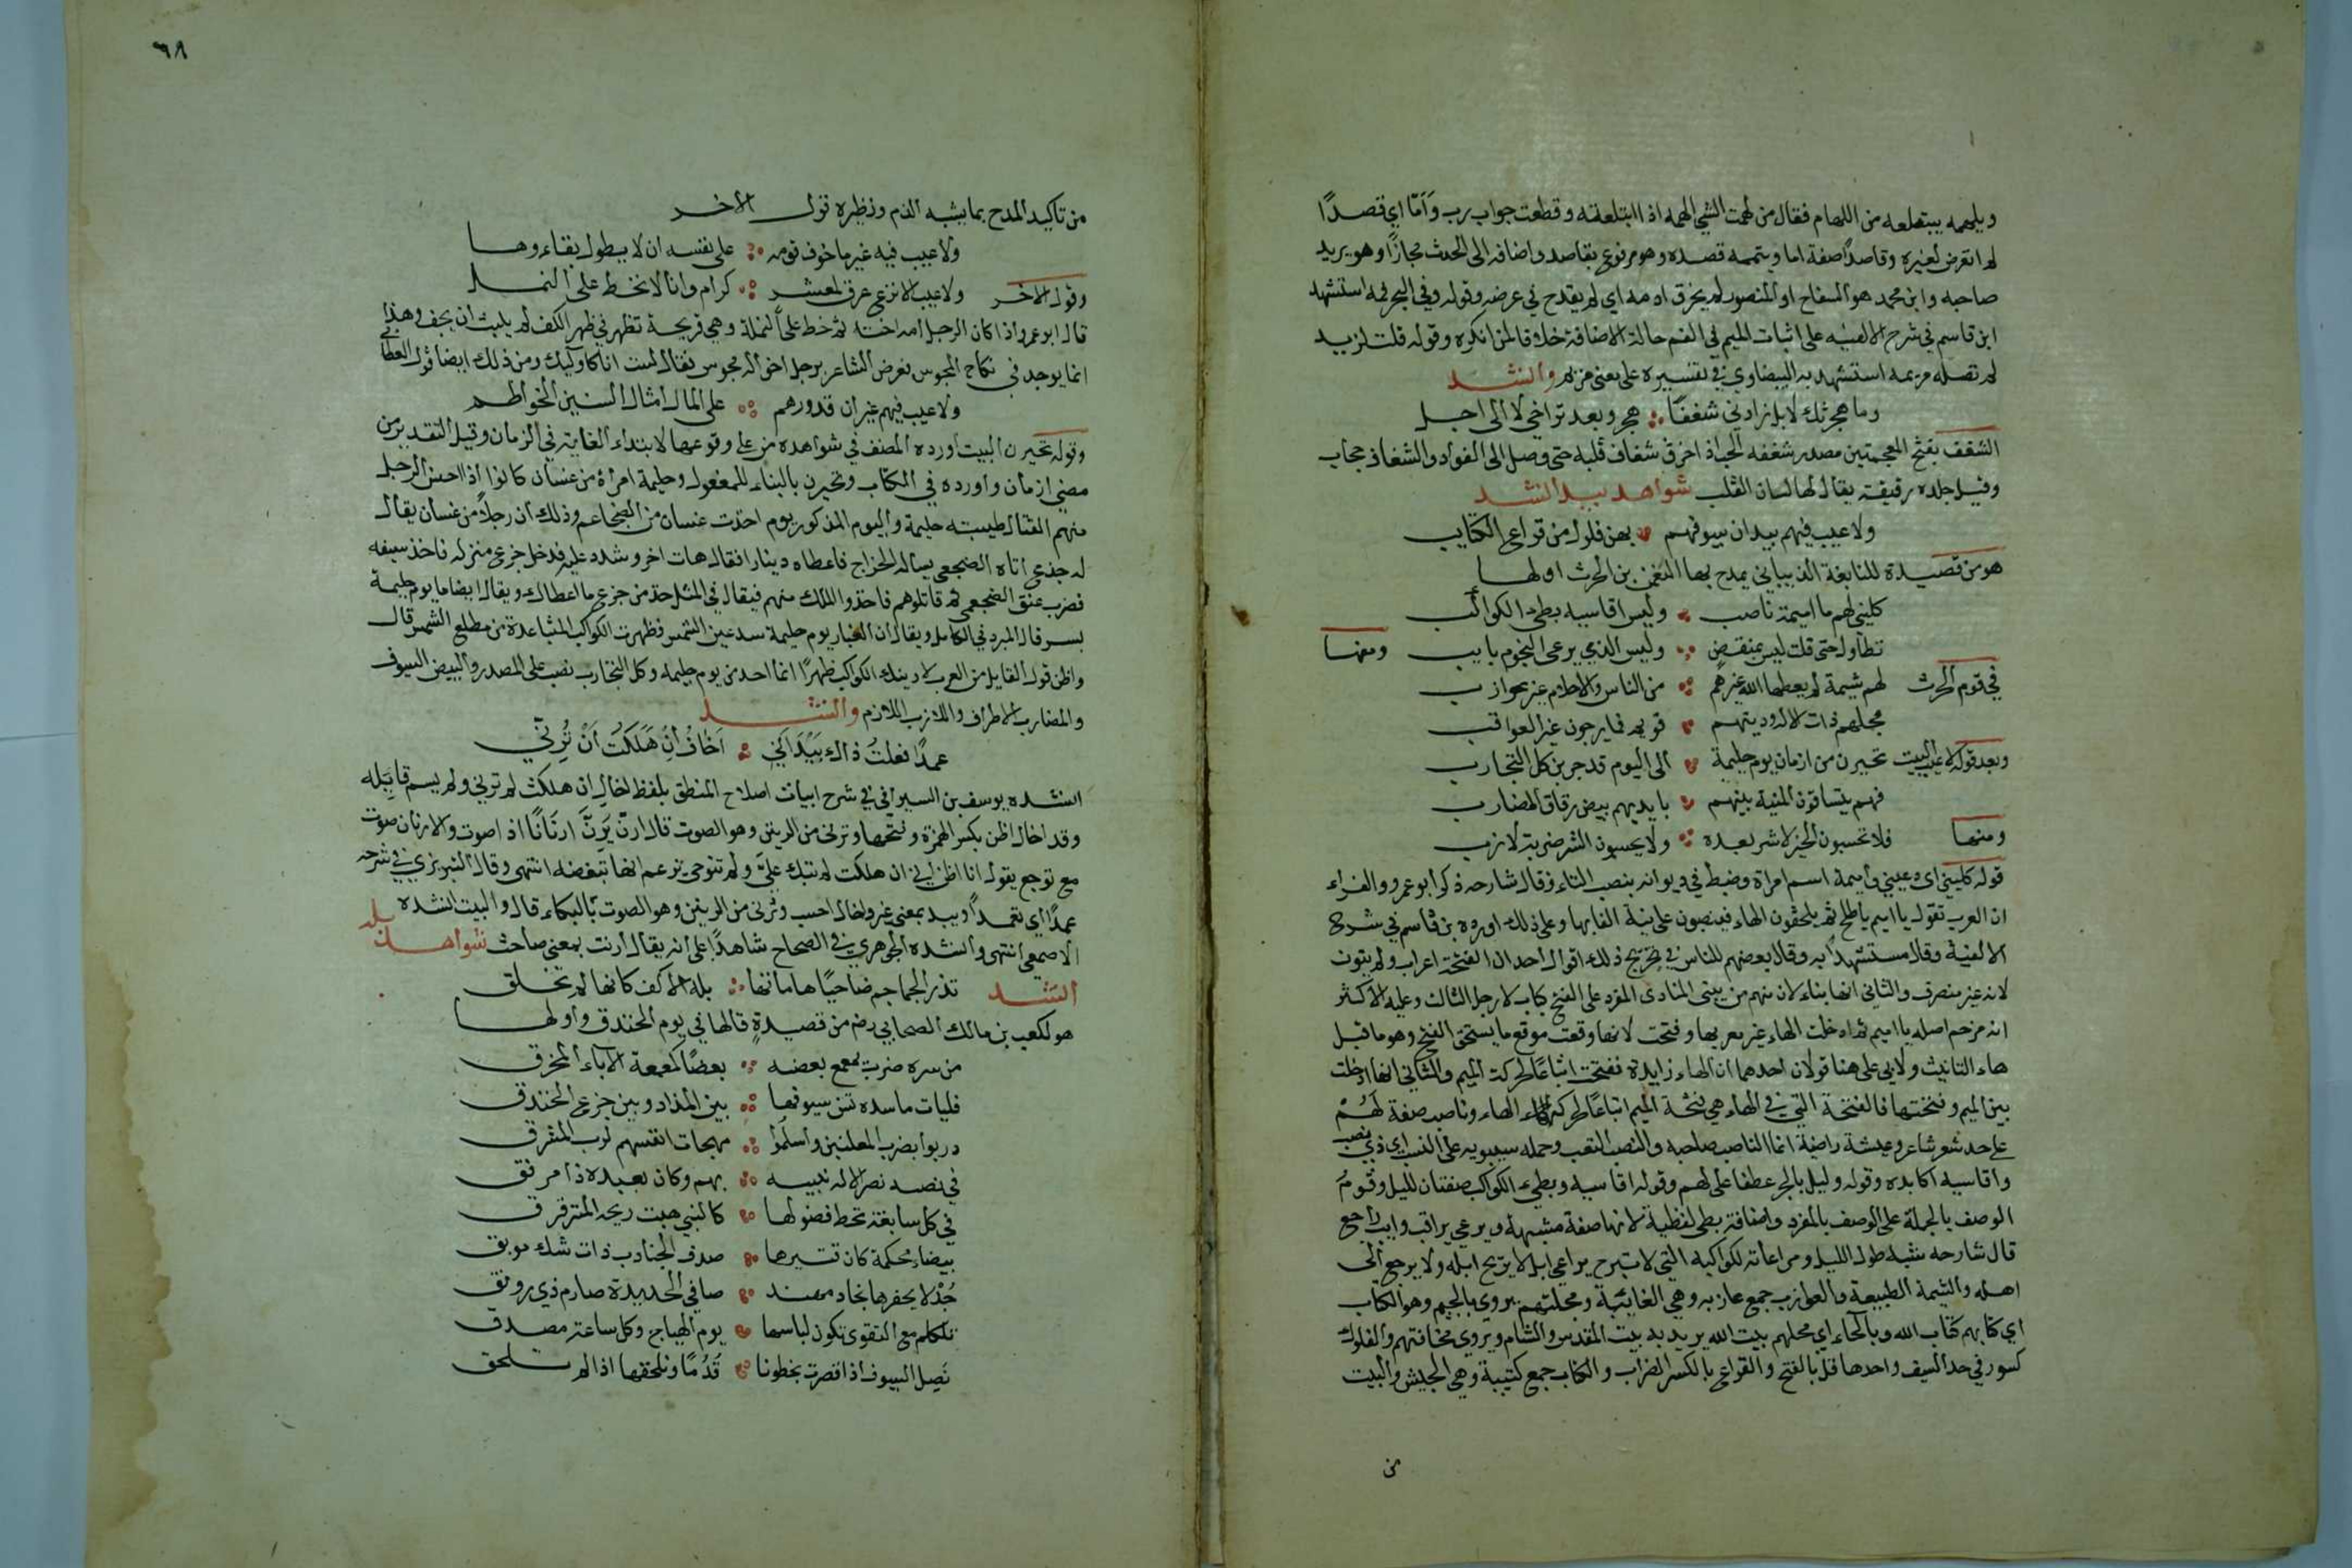 ويلهمه يبتلعه من اللهام فقال من لهمت الشي الهمه اذا ابتلعته وقطعت جواب رب وأمّا اي قصدًا
لم اتعرض لغيره وقاصدًا صفة اما ويتممه قصده وهو مرفوع بقاصد واضافه الى الحدث مجازًا وهو يريد
صاحبه وابن محمد هو السفاح او المنصور لم يخرق ادمه اي لم يقدح في عرضه وقوله وفي البحر فمه استشهد
ابن قاسم في شرح الالفيه على اثبات الميم في الفم حالة الاضافة خلافا لمن انكره وقوله قلت لزيد
لم تصله مريمه استشهد به البيضاوي في تفسيره على معنى مريم وانشد
وما هجرتك لا بل زادني شغفًا هجر وبعد تراخي لا الى اجل
الشغف بفتح المعجمتين مصدر شغفه الحب اذا خرق شغاف قلبه حتى وصل الى الفواد والشغاف حجاب
وقيل جلده رقيقة يقال لها لسان القلب شواهد بيد انشد
ولا عيب فيهم بيد ان سيوفهم بهن فلول من قراع الكتايب
هو من قصيدة للنابغة الذبياني يمدح بها النعمن بن الحرث اولها
كليني لهم يا اميمة ناصب وليل اقاسيه بطي الكواكب
تطاول حتى قلت ليس بمنقضٍ وليس الذي يرعى النجوم بايب ومنها
في قوم الحرث لهم شيمة لم يعطها الله غيرهم من الناس والاحلام غير عوازب
مجلهم ذات الاله ودينهم قويم فما يرجون غير العواقب
وبعد قوله ولا عيب البيت تخيرن من ازمان يوم حليمة الى اليوم قد جربن كل التجارب
فهم يتساقون المنية بينهم بايديهم بيض رقاق المضارب
ومنها فلا تحسبون الخير لا شر بعده ولا يحسبون الشر ضربة لازب
قوله كليني اي دعيني واميمة اسم امراة وضبط في ديوانه بنصب التاء وقال شارحه ذكر ابو عمرو والفراء
ان العرب تقول يا اميم يا طلح ثم يلحقون الهاء فينصبون على نية الغايها وعلى ذلك اورده بن قاسم في شرح
الالفية وقال مستشهدًا به وقال بعضهم للناس في تخريج ذلك اقوال احد ان الفتحة اعراب ولم ينون
لانه غير منصرف والثاني انها بناء لان منهم من يبنى المنادى المفرد على الفتح كباب لا رجل الثالث وعليه الاكثر
انه مرخم اصله يا اميم ثم ادخلت الهاء غير معربها وفتحت لانها وقعت موقع ما يستحق الفتح وهو ما قبل
هاء التانيث ولابي علي هنا قولان احدهما ان الهاء زايدة ففتحت اتباعًا لحركة الميم والثاني انها ادخلت
بين الميم وفتحتها فالفتحة التي في الهاء هي فتحة الميم اتباعًا لحركة الهاء وناصب صفة لهُمْ
على حد شعر شاعر وعيشة راضية انما الناصب صاحبه والنصب التعب وحمله سيبويه على النسب اي ذي نصب
واقاسيه اكابده وقوله وليل بالجر عطفا على لهم وقوله اقاسيه وبطيء الكواكب صفتان لليل وقدم
الوصف بالجملة على الوصف بالمفرد واضافة بطى لفظية لانها صفة مشبهة ويرعى يراقب وايب راجع
قال شارحه شبه طول الليل ومراعاته لكواكبه التي لا تبرح براعي ابل لا يريح ابله ولا يرجع الى
اهله والشيمة الطبيعة والعوازب جمع عازبه وهي الغايبة ومجلتهم يروى بالجيم وهو الكتاب
اي كتابهم كتاب الله وبالحاء اي محلهم بيت الله يريد به بيت المقدس والشام ويروى مخافتهم والفلول
كسور في حد السيف واحدها فل بالفتح والقراع بالكسر الضراب والكتايب جمع كتيبة وهي الجيش والبيت
من
٦٨
من تاكيد المدح بما يشبه الذم ونظيره قول الاخر
ولا عيب فيه غير ما خوف قومه على نفسه ان لا يطول بقاءوها
وقول الاخر ولا عيب الا نزع عرق لمعشر كرام وانا لا نخط على النمل
قال ابو عمر واذا كان الرجل امه اخته ثم خط على النملة وهي قريحة تظهر في ظهر الكف لم يلبث ان يجف وهذا
انما يوجد في نكاح المجوس فعرض الشاعر برجل اخواله مجوس فقال لست انا كاوليك ومن ذلك ايضا قول القطامي
ولا عيب فيهم غير ان قدورهم على المال امثال السنين الحواطم
وقوله تخيرن البيت اورده المصنف في شواهده من على وقوعها لابتداء الغاية في الزمان وقيل التقدير من
مضي ازمان واورده في الكتاب وتخيرن بالبناء للمفعول وحليمة امرأة من غسان كانوا اذا احسن الرجل
منهم القتال طيبته حليمة واليوم المذكور يوم اخذت غسان من الضجاعم وذلك ان رجلاً من غسان يقال
له جذع اتاه الضجعمي يساله الخراج فاعطاه دينارا فقال هات اخر وشدد عليه فدخل جذع منزله فاخذ سيفه
فضرب عنق الضجعمي ثم قاتلوهم فاخذوا الملك منهم فيقال في المثل خذ من جذع ما اعطاك ويقال ايضا ما يوم حليمة
بسر قال المبرد في الكامل ويقال ان الغبار يوم حليمة سد عين الشمس فظهرت الكواكب المتباعدة من مطلع الشمس قال
واظن قول القايل من العرب لارينك الكواكب ظهرًا انما اخذ من يوم حليمه وكل التجارب نصب على المصدر والبيض السيوف
والمضارب الاطراف واللازب اللازم وانشد
عمدًا فعلتُ ذاك بَيْدَ اَنِّي اَخَافُ اِنْ هَلَكْتُ اَنْ تُرِنِّي
انشده يوسف بن السيرافي في شرح ابيات اصلاح المنطق بلفظ اخال ان هلكت لم ترني ولم يسم قايله
وقد اخال اظن بكسر الهمزة وفتحها وترنى من الرنين وهو الصوت قال ارنّ يَرِنّ ارنانًا اذا صوت والارنان صوت
مع توجع يقول انا اظن اني ان هلكت لم تبك عليّ ولم تنوحي تزعم انها تبغضه انتهى وقال التبريزي في شرحه
عمدًا اي تعمدًا وبيد بمعنى غير واخال احسب وترنى من الرنين وهو الصوت بالبكاء قال والبيت انشده
الاصمعي انتهى وانشده الجوهري في الصحاح شاهدًا على انه يقال ارنت بمعنى صاحت شواهد بله
انشد تذر الجماجم ضاحيًا هاماتها بله الاكف كانها لم تخلق
هو لكعب بن مالك الصحابي رضه من قصيدةٍ قالها في يوم الخندق واولها
من سره ضرب يمعمع بعضه بعضًا كمعمعة الاباء المحرق
فليات ماسدة تسن سيوفها بين المذاد وبين جزع الخندق
دربوا بضرب المعلمين واسلموا مهجات انفسهم لرب المشرق
في نصبة نصر الاله نبيه بهم وكان بعبده ذا مرفق
في كل سابغة تخط فضولها كالنهي هبت ريحه المترقرق
بيضاء محكمة كان قتيرها صدف الجنادب ذات شك موثق
جُدْلا يحفزها نجاد مهند صافي الحديدة صارم ذي رونق
تلكم مع التقوى تكون لباسها يوم الهياج وكل ساعة مصدق
نَصِل السيوف اذا قصرت بخطونا قُدُمًا ونلحقها اذا لم تلحق